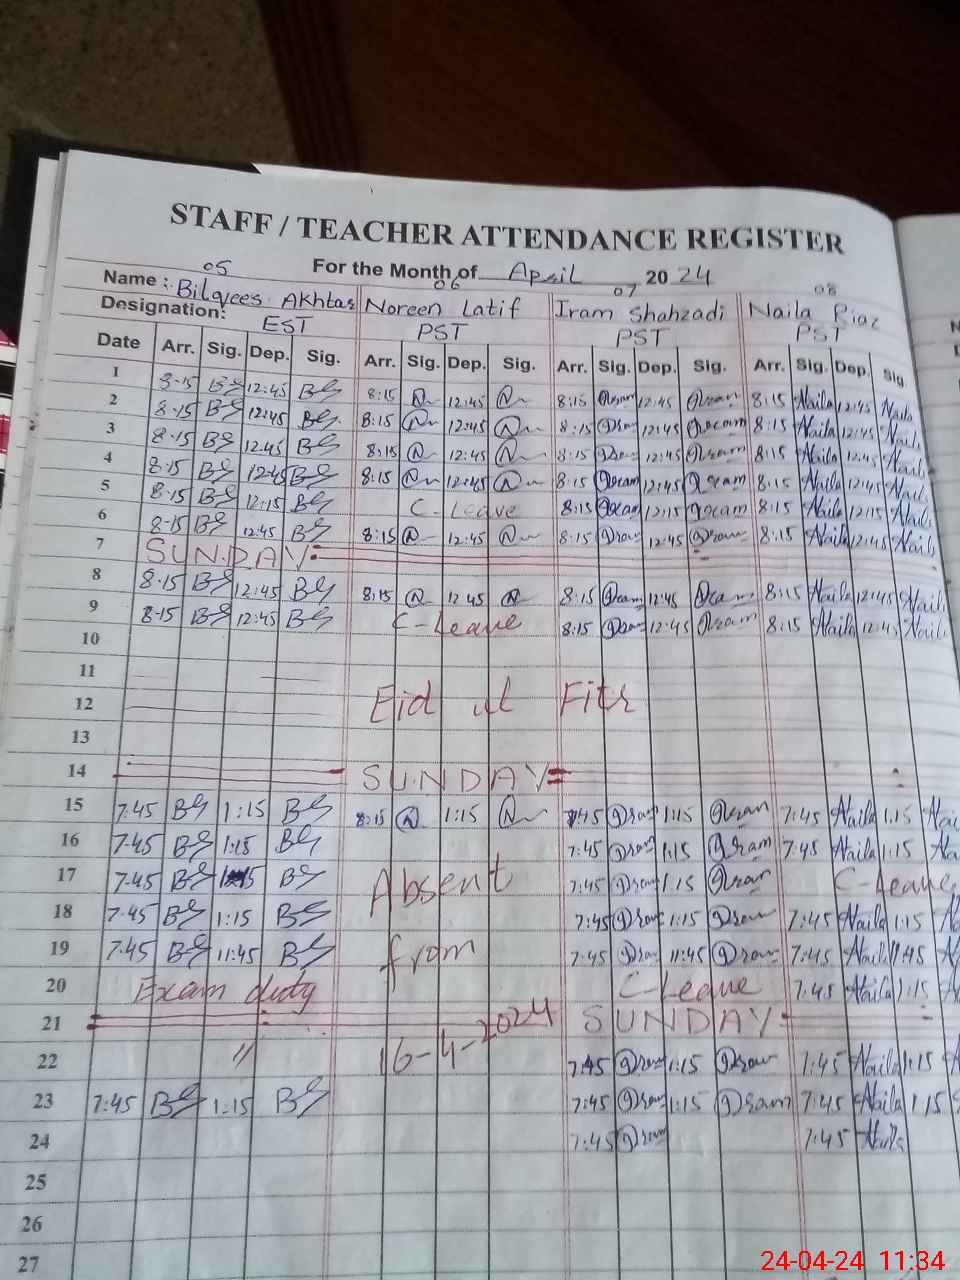 STAFF / TEACHER ATTENDANCE REGISTER
For the Month of April 2024
05 06 07 08
Name : Bilqees Akhtar Noreen Latif Iram Shahzadi Naila Riaz
Designation: EST PST PST PST
Date Arr. Sig. Dep. Sig. Arr. Sig. Dep. Sig. Arr. Sig. Dep. Sig. Arr. Sig. Dep. Sig.
1 8-15 BS 12:45 BS 8:15 12:45 8:15 Iram 12:45 Iram 8:15 Naila 12:45 Naila
2 8-15 BS 12:45 BS 8:15 12:45 8:15 Iram 12:45 Iram 8:15 Naila 12:45 Naila
3 8-15 BS 12:45 BS 8:15 12:45 8:15 Iram 12:45 Iram 8:15 Naila 12:45 Naila
4 8-15 BS 12:45 BS 8:15 12:45 8:15 Iram 12:45 Iram 8:15 Naila 12:45 Naila
5 8-15 BS 12:15 BS C-Leave 8:15 Iram 12:15 Iram 8:15 Naila 12:15 Naila
6 8-15 BS 12:45 BS 8:15 12:45 8:15 Iram 12:45 Iram 8:15 Naila 12:45 Naila
7 SUNDAY
8 8-15 BS 12:45 BS 8:15 12 45 8:15 Iram 12:45 Iram 8:15 Naila 12:45 Naila
9 8-15 BS 12:45 BS C-Leave 8:15 Iram 12:45 Iram 8:15 Naila 12:45 Naila
10
11
12 Eid ul Fitr
13
14 SUNDAY
15 7:45 BS 1:15 BS 8:15 1:15 7:45 Iram 1:15 Iram 7:45 Naila 1:15
16 7:45 BS 1:15 BS 7:45 Iram 1:15 Iram 7:45 Naila 1:15
17 7-45 BS BS Absent 7:45 Iram 1:15 Iram C-Leave
18 7-45 BS 1:15 BS 7:45 Iram 1:15 Iram 7:45 Naila 1:15
19 7:45 BS 11:45 BS from 7:45 Iram 11:45 Iram 7:45 Naila
20 Exam duty C-Leave 7:45 Naila 1:15
21 SUNDAY
22 〃 16-4-2024 7:45 Iram 1:15 Iram 7:45 Naila 1:15
23 7:45 BS 1:15 BS 7:45 Iram 1:15 Iram 7:45 Naila 1:15
24 7:45 Iram 7:45 Naila
25
26
27
24-04-24 11:34